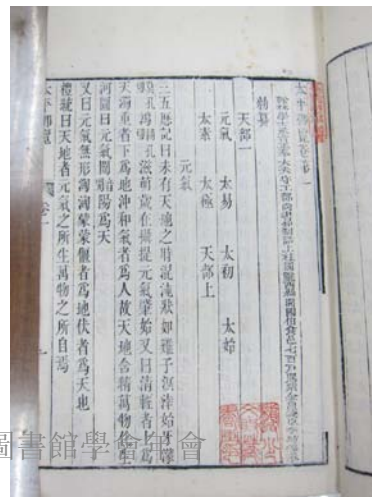 太平御覽卷一
敕纂
天部一
元氣 太易 太初 太始
太素 太極 天部上
元氣
三五曆記曰未有天地之時混沌狀如雞子溟涬始牙濛
鴻滋萌歲在攝提元氣肇始又曰清輕者上爲
天濁重者下爲地沖和氣者爲人故天地含精萬物化生
河圖曰元氣闓陽爲天
又曰元氣無形洶洶蒙蒙偃者爲地伏者爲天也
禮統曰天地者元氣之所生萬物之所自焉
太平御覽 卷一 一
圖書館學會年會